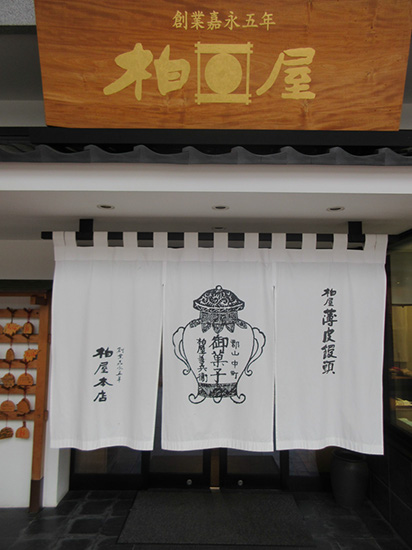 創業嘉永五年
柏屋
柏屋
薄皮饅頭
郡山中町
御菓子
柏屋善兵衛
創業嘉永五年
柏屋本店